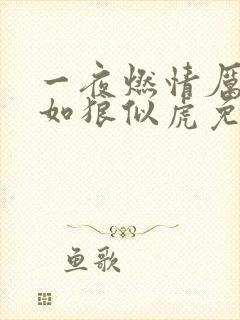 一夜燃情厉
如狼似虎免
鱼歌